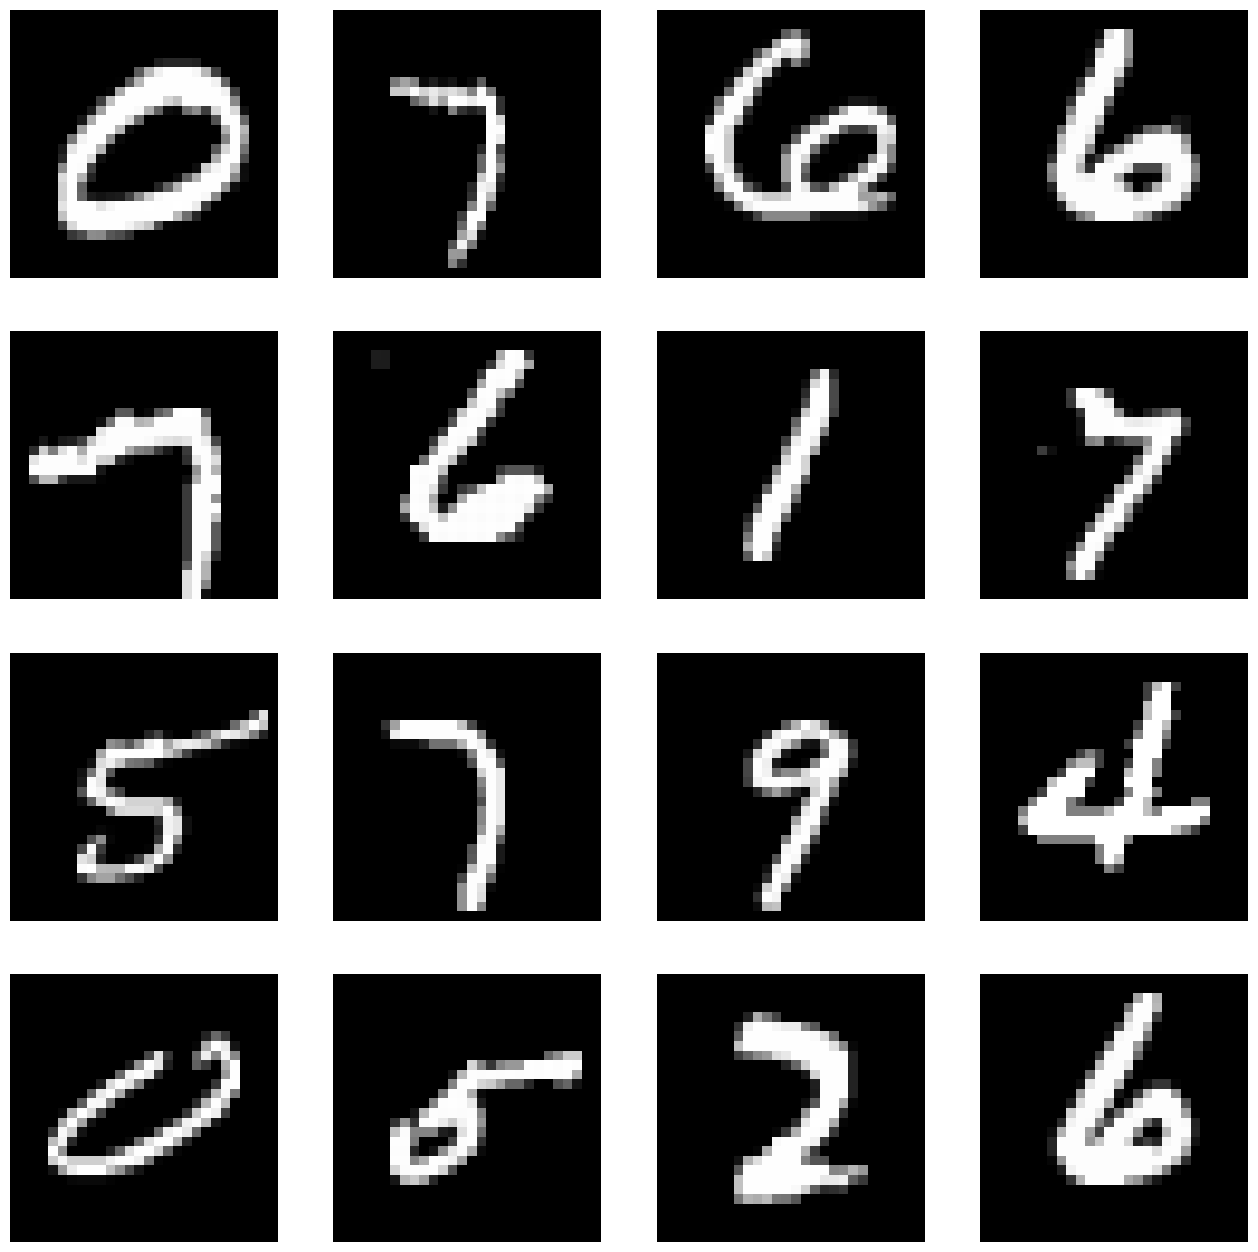 0 7 6 6
7 6 1 7
5 7 9 4
0 5 2 6